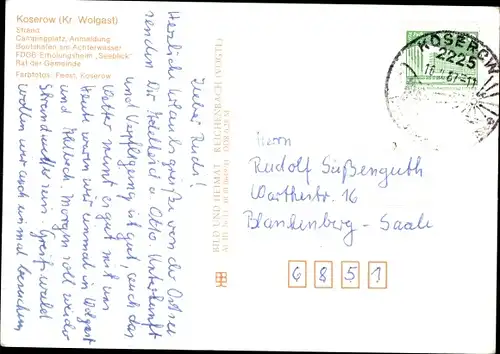 Koserow (Kr. Wolgast)
Strand
Campingplatz, Anmeldung
Bootshafen am Achterwasser
FDGB-Erholungsheim „Seeblick"
Rat der Gemeinde
Farbfotos: Feest, Koserow
Lieber Rudi!
Herzliche Urlaubsgrüße von der Ostsee
senden Dir Adelheid u. Otto. Unterkunft
und Verpflegung ist gut, auch das
Wetter meint es gut mit uns.
Heute waren wir einmal in Wolgast
und Morgen soll wieder
Strandwetter sein. Greifswald
wollen wir auch einmal besuchen
BILD UND HEIMAT REICHENBACH (VOGTL)
KOSEROW
2225
Herrn
Rudolf Süßenguth
Warthestr. 16
Blankenberg - Saale
6851